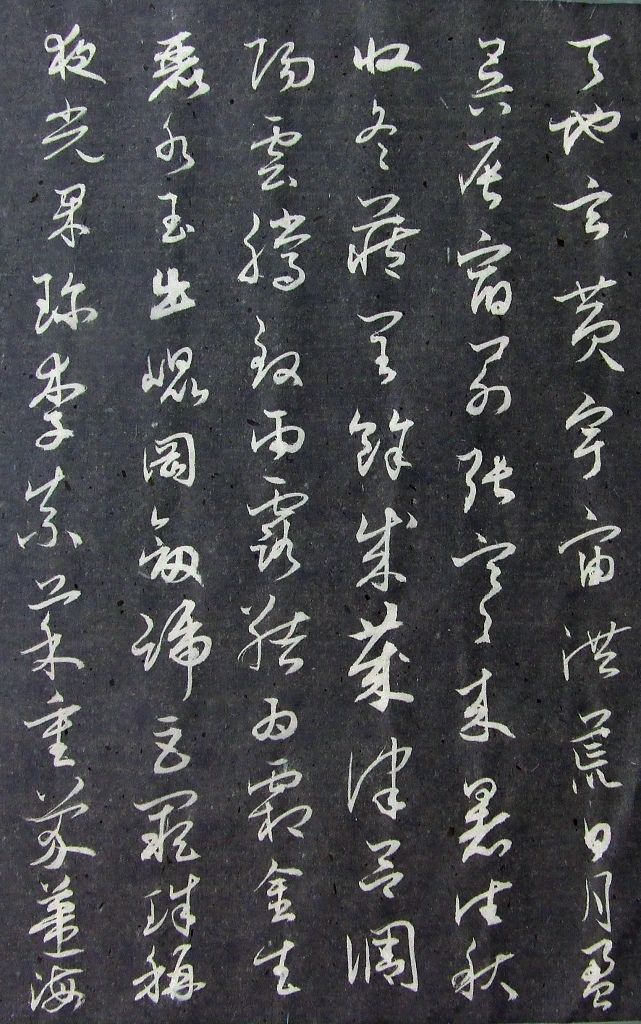 天地玄黄宇宙洪荒日月盈
昃辰宿列張寒来暑往秋
收冬藏閏餘成歲律呂調
陽雲騰致雨露結為霜金生
麗水玉出崐岡劔號巨闕珠稱
夜光果珍李柰菜重芥薑海